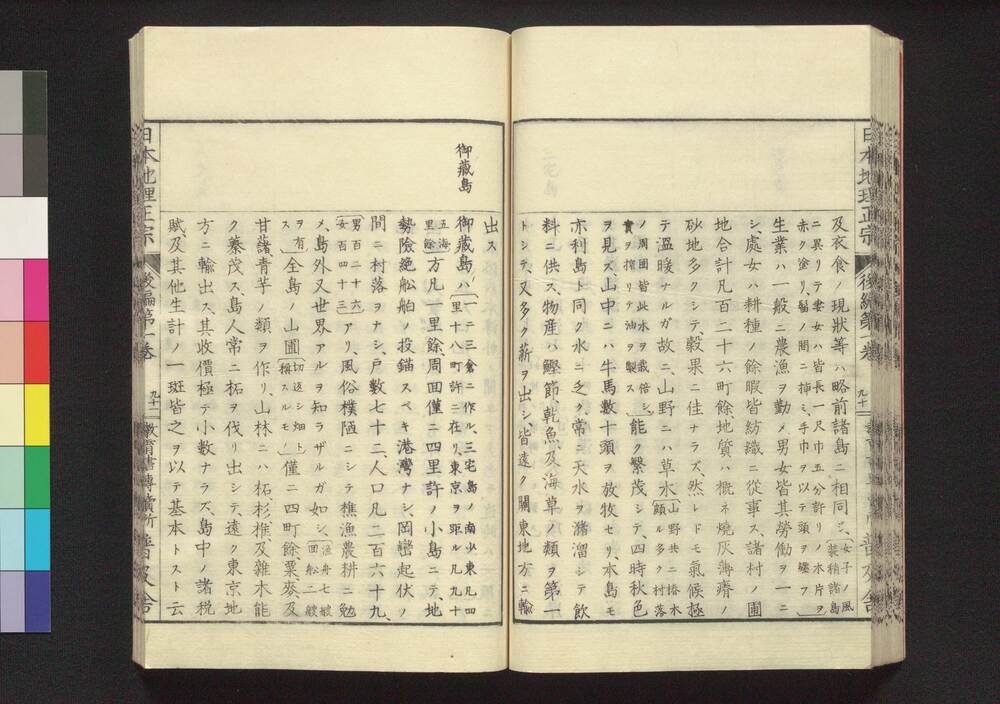 日本地理正宗 後編第一巻 九十一
及衣食ノ現狀等ハ略前諸島ニ相同シ、〔女子ノ風裝稍諸島
ニ異リテ妻女ハ皆長一尺巾五分許リノ木片ヲ赤ク塗リ、髷ノ間ニ揷ミ、手巾ヲ以テ頭ヲ纒フ、〕
生業ハ一般ニ農漁ヲ勤メ男女皆其勞働ヲ一ニ
シ、處女ハ耕種ノ餘暇皆紡織ニ從事ス、諸村ノ圃
地合計凡百二十六町餘、地質ハ概ネ燒灰薄瘠ノ
砂地多クシテ、穀果ニ佳ナラズ、然レドモ氣候極
テ溫暖ナルガ故ニ、山野ニハ草水〔山野共ニ椿木頗ル多ク村落
ノ周圍皆此水ヲ栽培シ、實ヲ搾リテ油ヲ製ス、〕能ク繁茂シテ、四時秋色
ヲ見ズ、山中ニハ牛馬數十頭ヲ放牧セリ、本島モ
亦利島ト同ク水ニ乏ク、常ニ天水ヲ瀦溜シテ飲
料ニ供ス、物産ハ鰹節、乾魚、及海草ノ類ヲ第一
トシテ、又多ク薪ヲ出シ、皆遠ク關東地方ニ輸
出ス
御藏島
御藏島ハ〔一ニ三倉ニ作ル、三宅島ノ南少東凡四里十八町許ニ在リ、東京ヲ距ル凡九十
五海里餘〕方凡一里餘、周回僅ニ四里許ノ小島ニテ、地
勢險絶船舶ノ投錨スベキ港灣ナシ、岡巒起伏ノ
間ニ村落ヲナシ、戸數七十二、人口凡二百六十九、
〔男百二十六女百四十三〕アリ、風俗樸陋ニシテ樵漁農耕ニ勉
メ、島外又世界アルヲ知ラザルガ如シ、〔漁舟七艘回船二艘
ヲ有ス〕全島ノ山圃〔切返シ畑ト稱スルモ〕僅ニ四町餘粟麥及
甘藷、青芋ノ類ヲ作リ、山林ニハ柘、杉椎、及雜木能
ク蓁茂ス、島人常ニ柘ヲ伐リ出シテ、遠ク東京地
方ニ輸出ス、其收價極テ小數ナラズ、島中ノ諸税
賦及其他生計ノ一斑皆之ヲ以テ基本トスト云
日本地理正宗 後編第一巻 九十二 教育書專賣所 普及舍